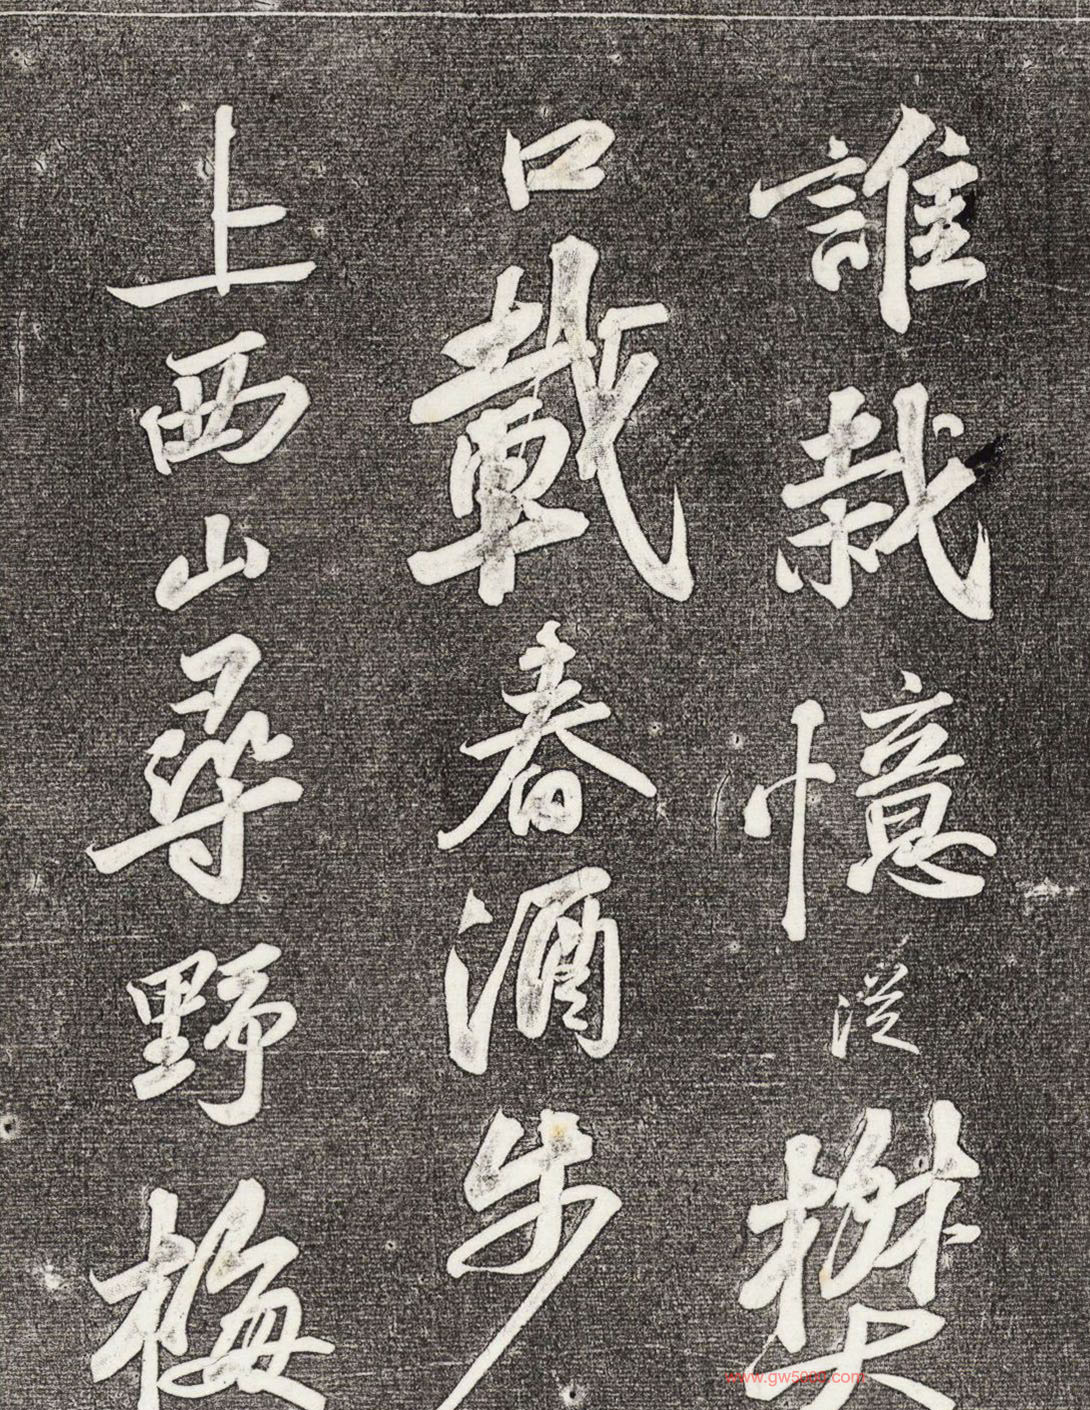 誰栽憶從樊
口載春酒步
上西山尋野梅
www.gw5000.com